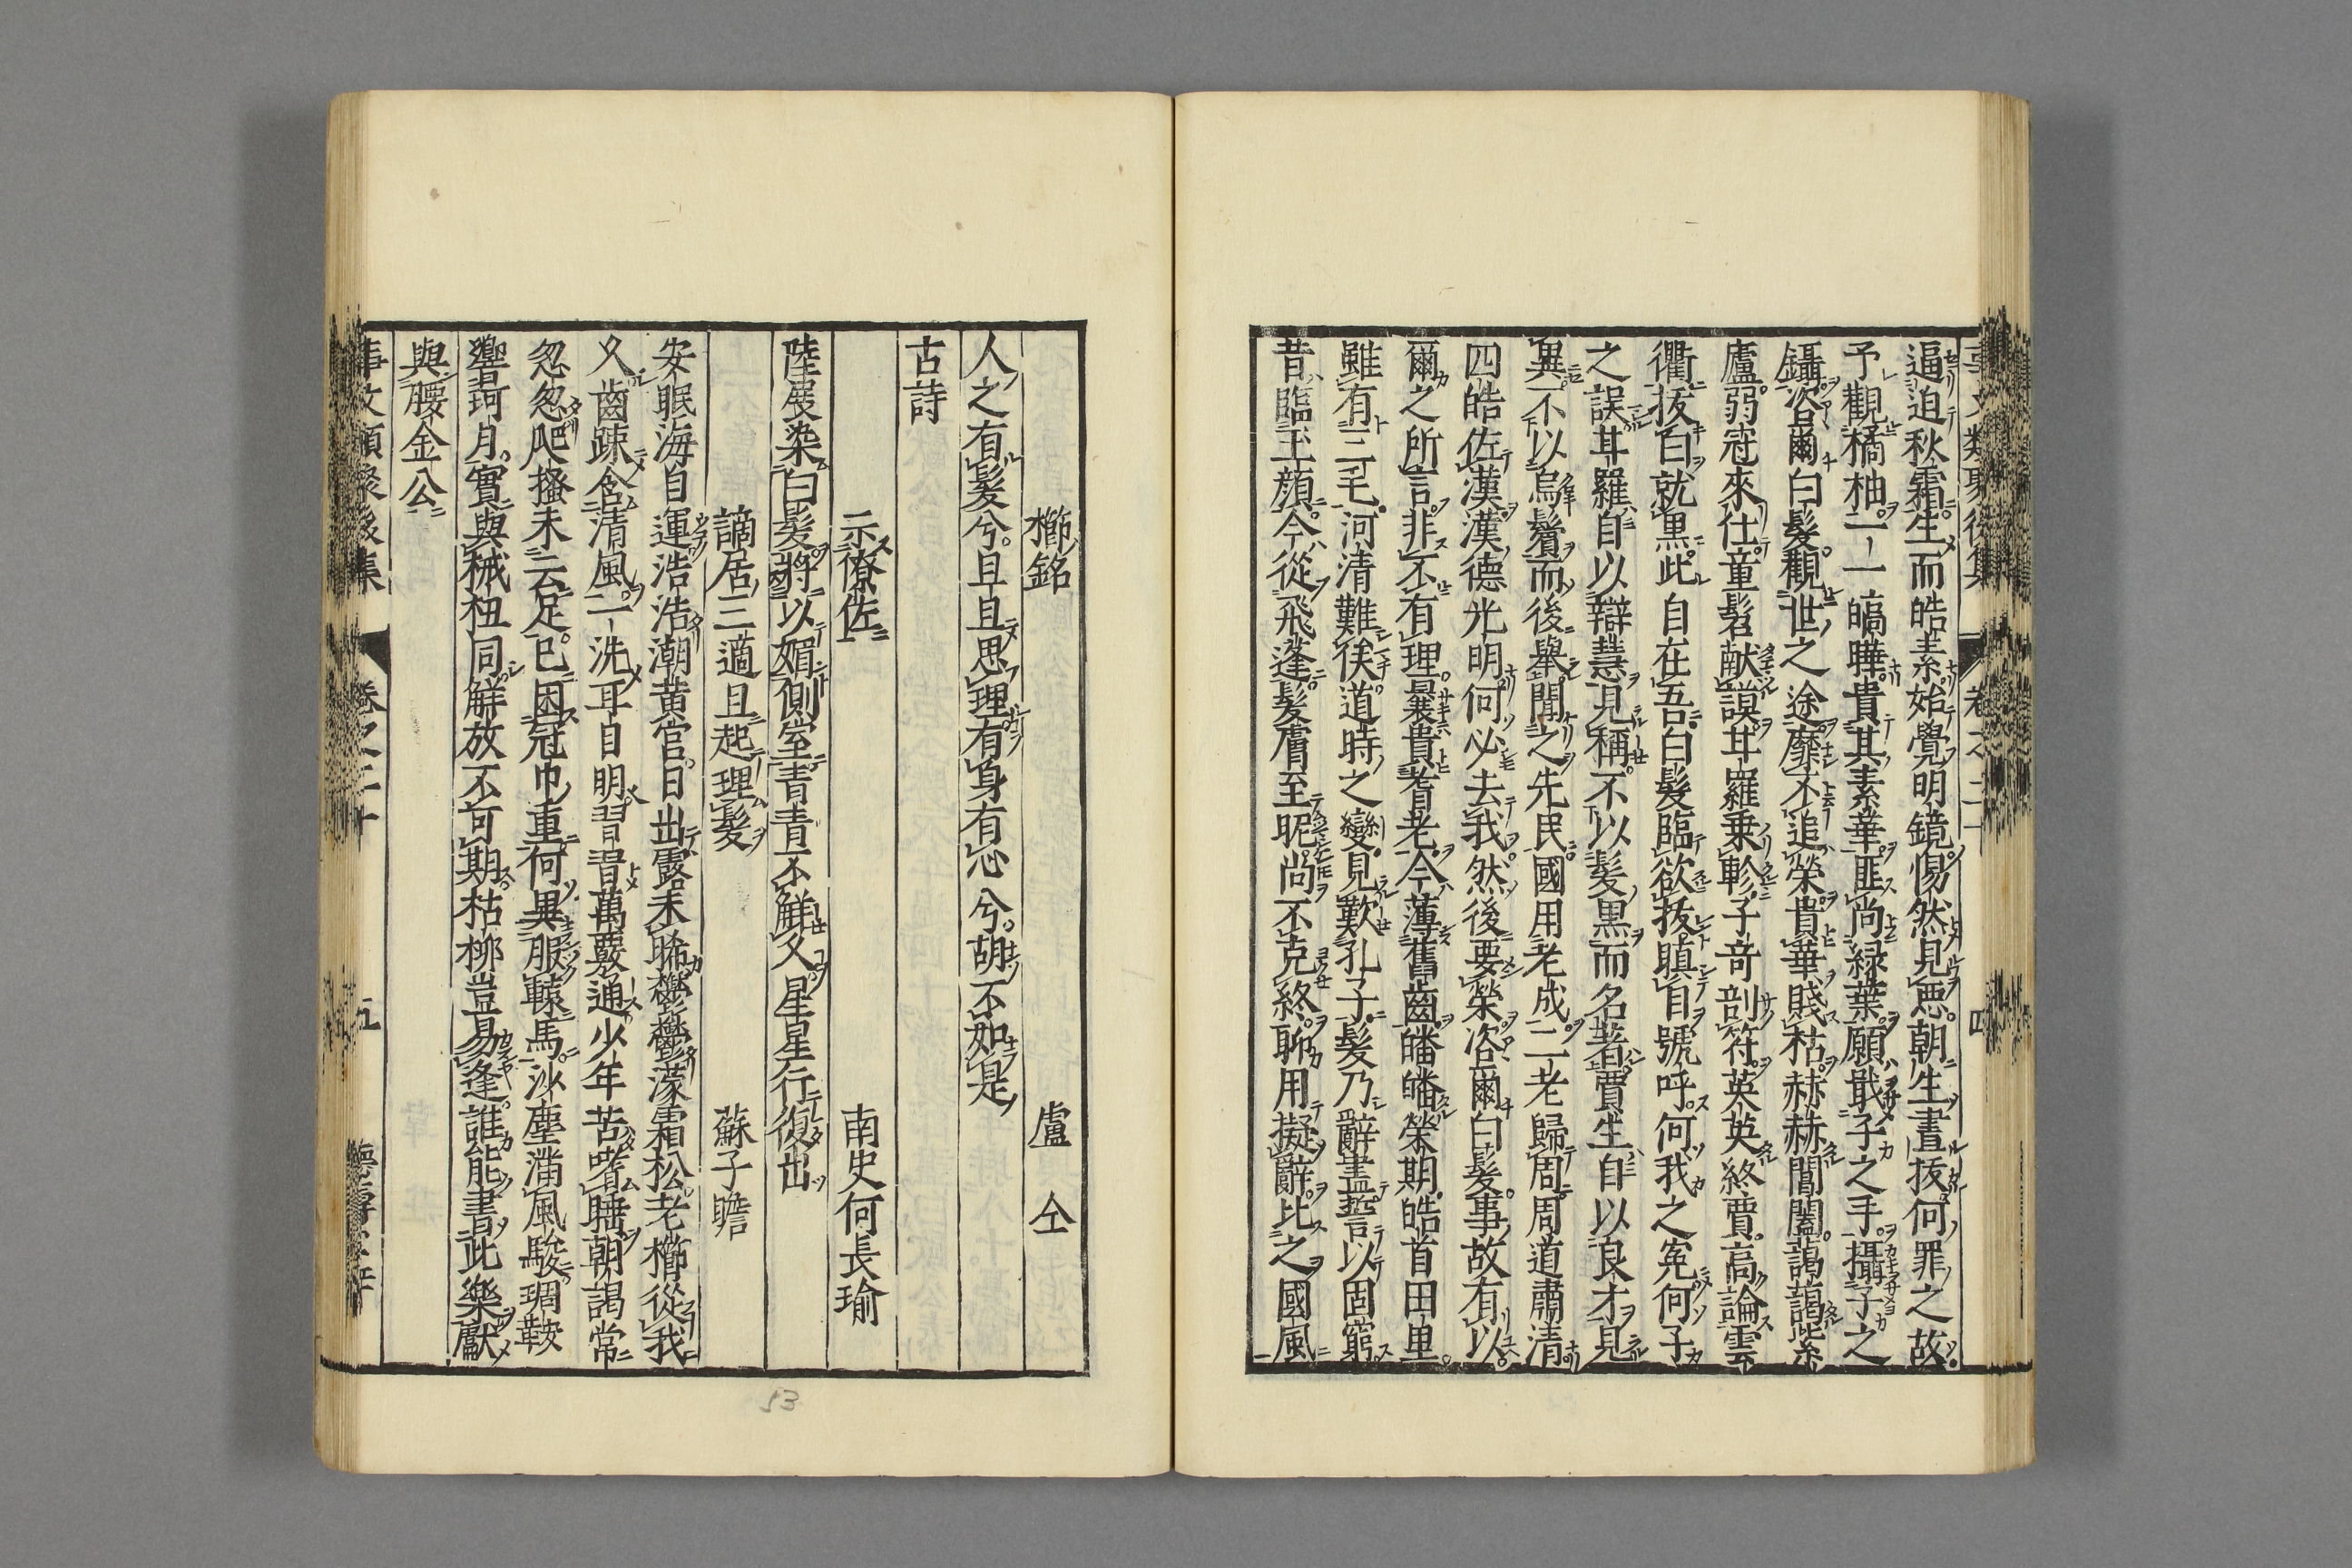 事文類聚後集 卷之二十 四
逼迫秋霜生而皓素始覺明鏡惕然見惡朝生晝拔何罪之故
予觀橘柚一一皜曄貴其素華匪尚緑葉願戢子之手攝子之
鑷咨爾白髮觀世之途靡不追榮貴華賤枯赫赫閶闔藹藹紫
廬弱冠來仕童髫献謨甘羅乗軫子竒剖符英英終賈高論雲
衢拔白就黒此自在吾白髮臨欲拔瞋目號呼何我之寃何子
之誤甘羅自以辯慧見稱不以髮黒而名著賈生自以良才見
異不以烏鬢而後舉聞之先民國用老成二老歸周周道肅清
四皓佐漢漢德光明何必去我然後要榮咨爾白髮事故有以
爾之所言非不有理曩貴耆老今薄舊齒皤皤榮期皓首田里
雖有二毛河清難俟道時之變見歎孔子髮乃辭盡誓以固窮
昔臨玉顔今從飛蓬髮膚至昵尚不克終聊用擬辭比之國風
櫛銘 盧仝
人之有髮兮且且思理有身有心兮胡不如是
古詩
示僚佐 南史何長瑜
陸展染白髮將以媚側室青青不觧久星星行復出
謫居三適且起理髮 蘇子瞻
安眠海自運浩浩潮黄宫日出露未晞鬱鬱濛霜松老櫛從我
久齒踈含清風一洗耳目明習習萬竅通少年苦嗜睡朝謁常
忽忽爬搔未云足已困冠巾重何異服轅馬沙塵滿風駿琱鞍
響珂月實與械杻同觧放不可期枯栁豈易逢誰能書此樂獻
與腰金公
事文類聚後集 卷之二十 五
53